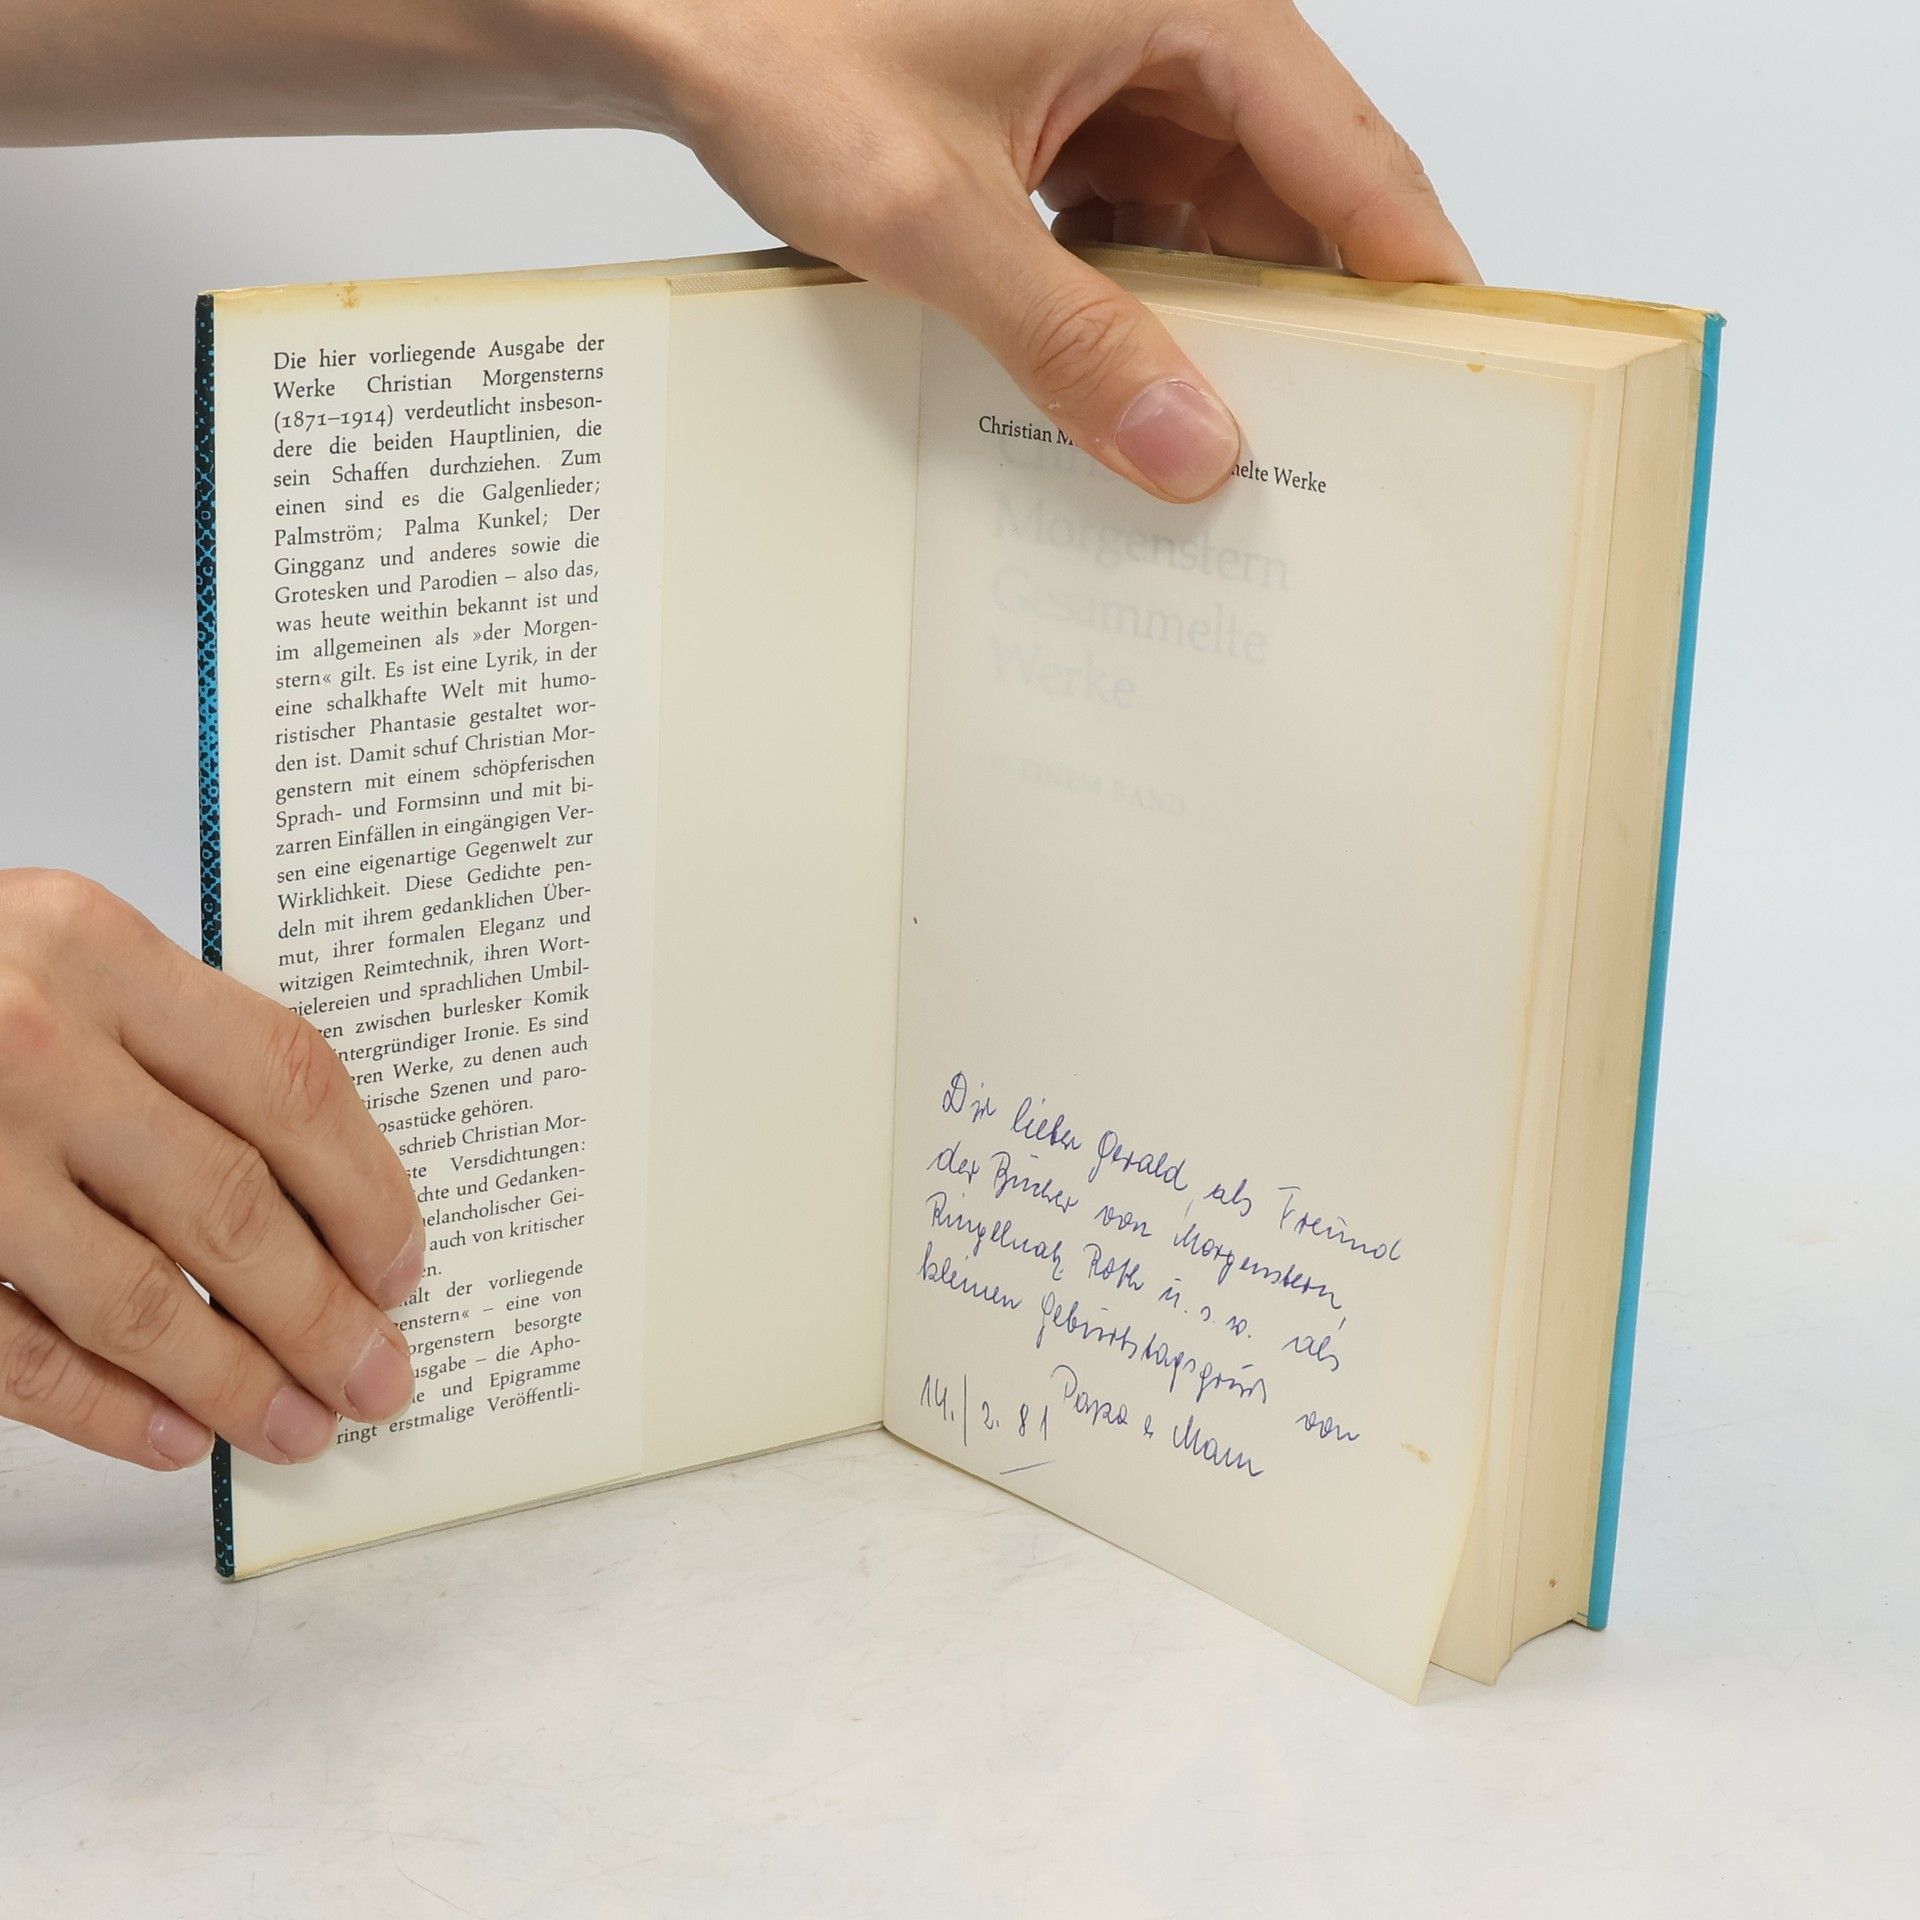 Die hier vorliegende Ausgabe der
Werke Christian Morgensterns
(1871–1914) verdeutlicht insbeson-
dere die beiden Hauptlinien, die
sein Schaffen durchziehen. Zum
einen sind es die Galgenlieder;
Palmström; Palma Kunkel; Der
Gingganz und anderes sowie die
Grotesken und Parodien – also das,
was heute weithin bekannt ist und
im allgemeinen als »der Morgen-
stern« gilt. Es ist eine Lyrik, in der
eine schalkhafte Welt mit humo-
ristischer Phantasie gestaltet wor-
den ist. Damit schuf Christian Mor-
genstern mit einem schöpferischen
Sprach- und Formsinn und mit bi-
zarren Einfällen in eingängigen Ver-
sen eine eigenartige Gegenwelt zur
Wirklichkeit. Diese Gedichte pen-
deln mit ihrem gedanklichen Über-
mut, ihrer formalen Eleganz und
witzigen Reimtechnik, ihren Wort-
pielereien und sprachlichen Umbil-
en zwischen burlesker Komik
ntergründiger Ironie. Es sind
eren Werke, zu denen auch
irische Szenen und paro-
osastücke gehören.
schrieb Christian Mor-
ste Versdichtungen:
chte und Gedanken-
melancholischer Gei-
auch von kritischer
en.
alt der vorliegende
genstern« – eine von
orgenstern besorgte
usgabe – die Apho-
e und Epigramme
ringt erstmalige Veröffentli-
Christian M
melte Werke
Morgenstern
Gesammelte
Werke
EINEM BAND
Dir lieber Gerald, als Freund
der Bücher von Morgenstern,
Ringelnatz, Roth u. s. w. als
kleinen Geburtstagsgruß von
Papa & Mam
14./2. 81